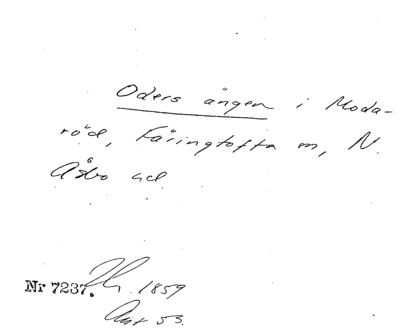 Oders ängen i Moda-
röd, Färingtofta m, N.
Åsbo hd
Nr 7237. 1859
Ant 53.